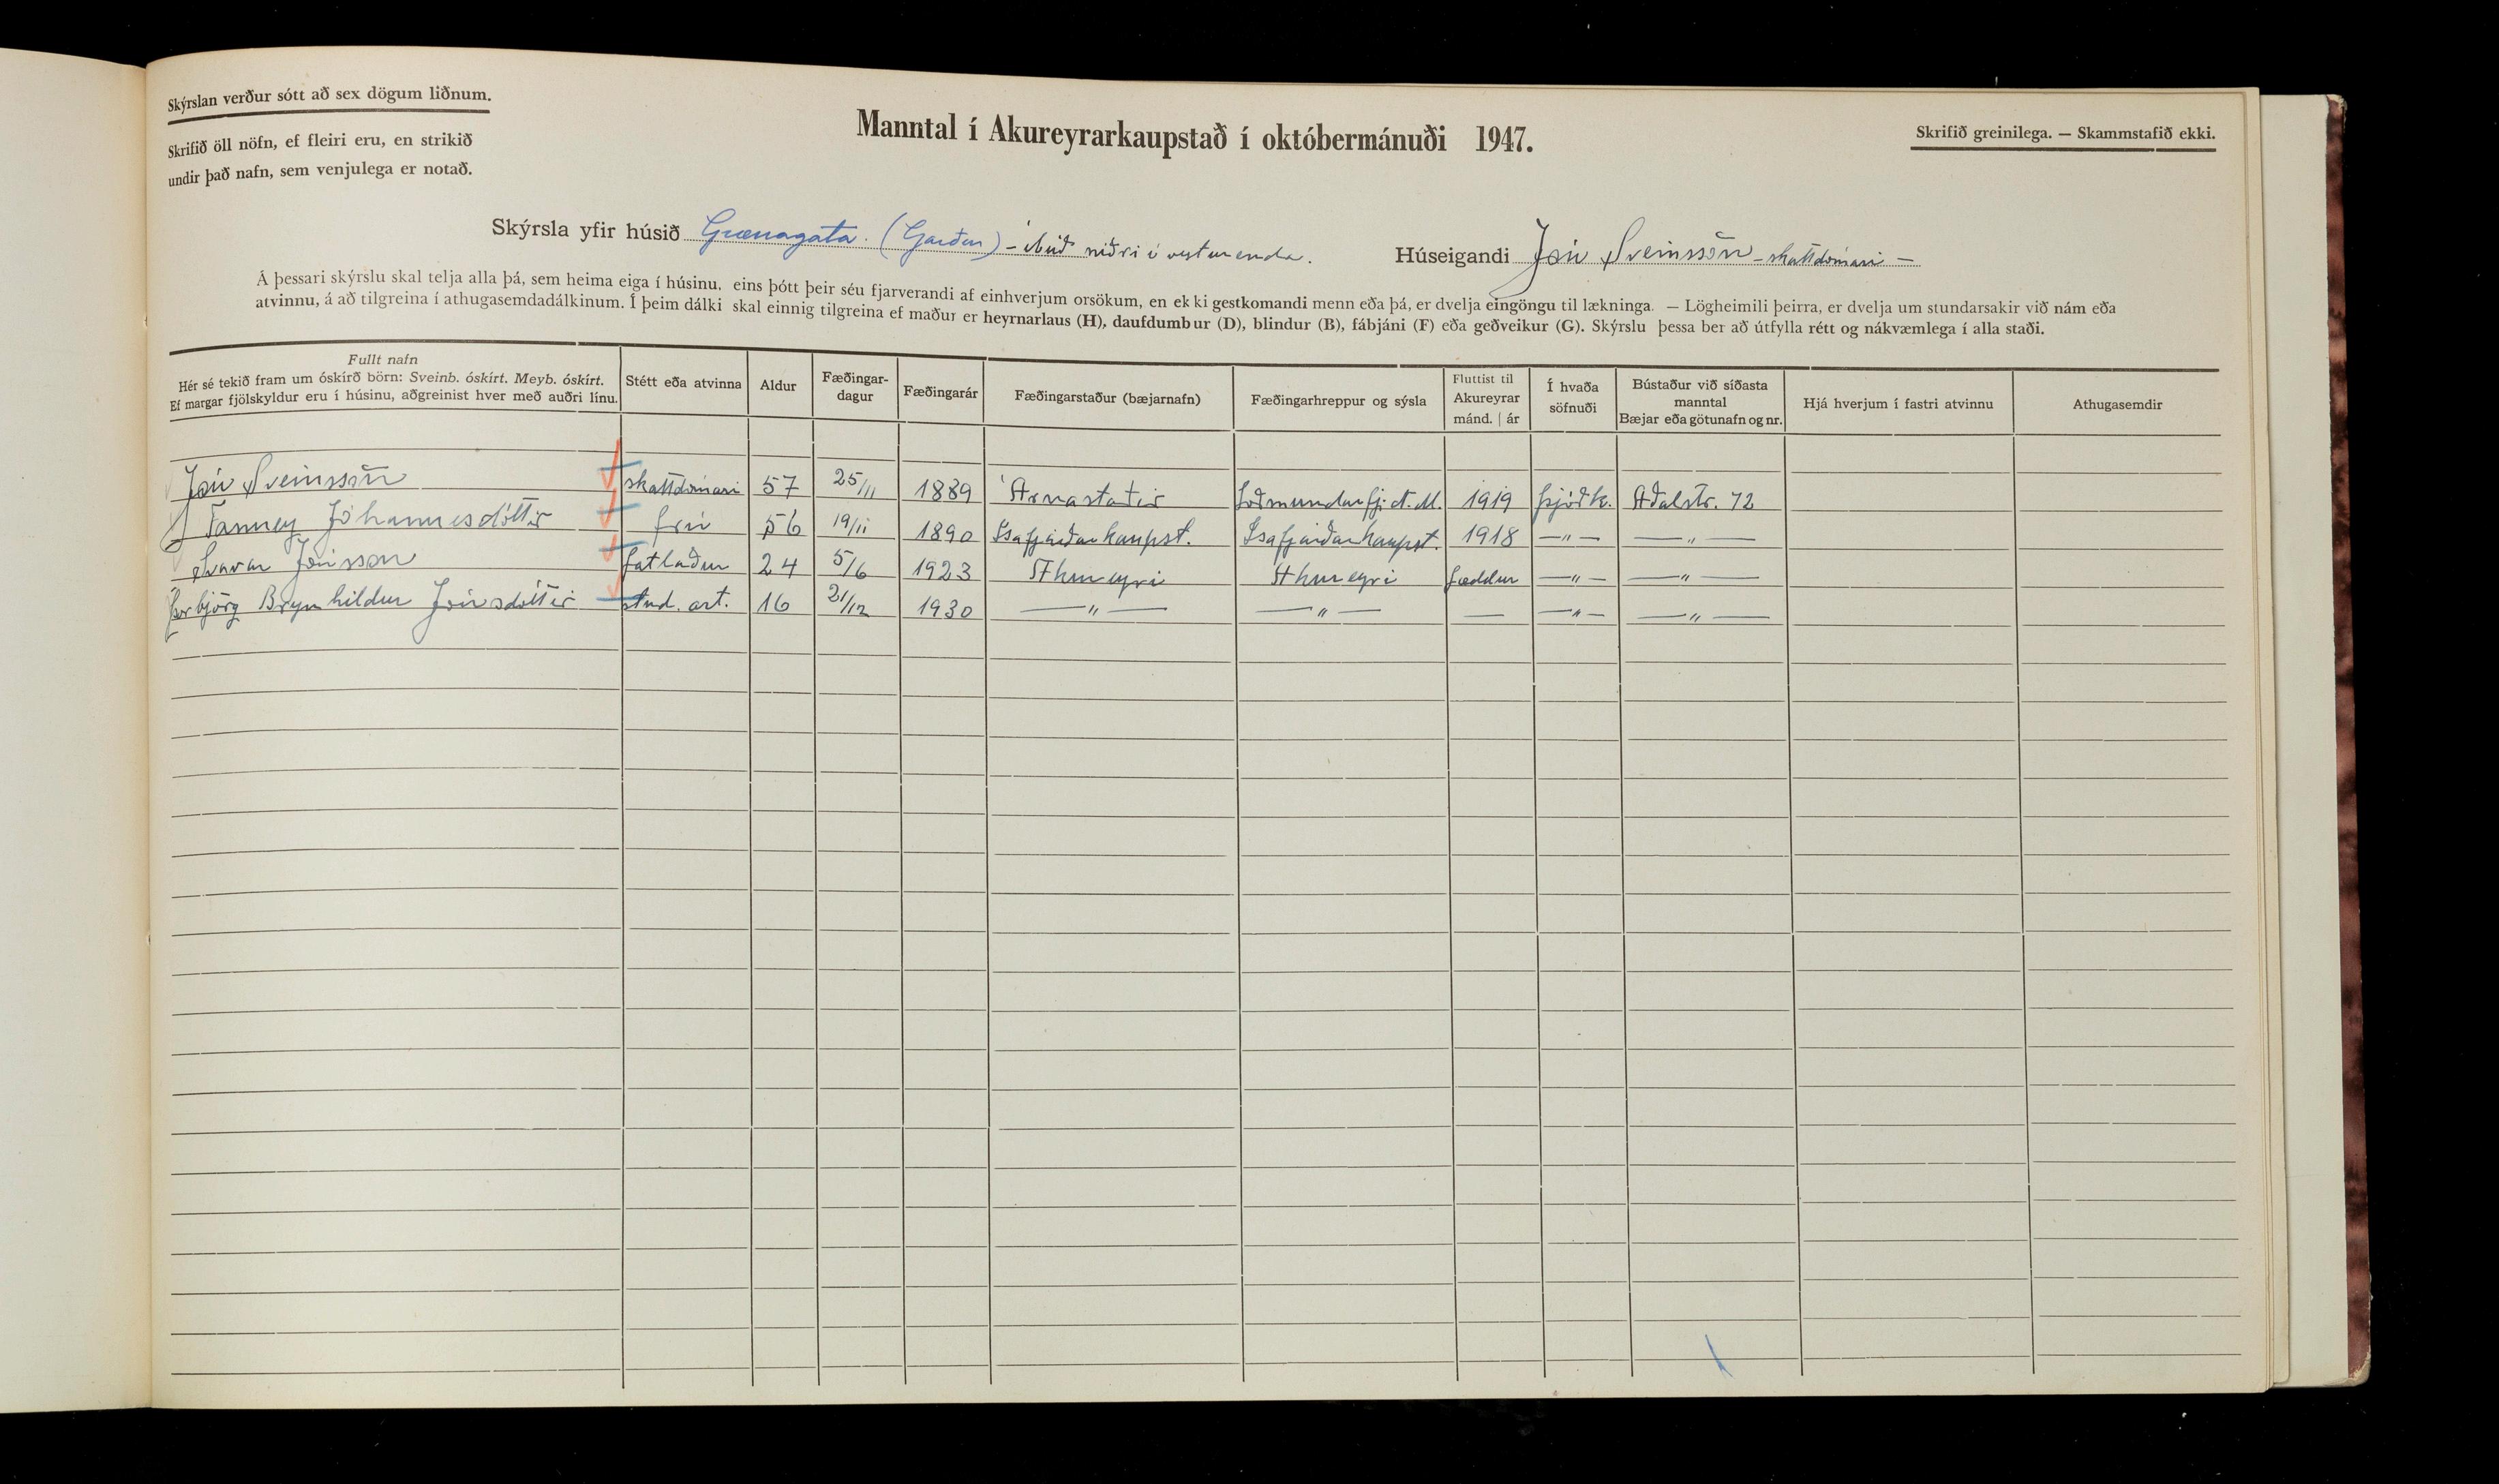 Skýrslan verður sótt að sex dögum liðnum.
Skrifið öll nöfn, ef fleiri eru, en strikið
undir það nafn, sem venjulega er notað.
Manntal í Akureyrarkaupstað í októbermánuði 1947.
Skrifið greinilega. — Skammstafið ekki.
Skýrsla yfir húsið Grænagata. (Garður) - íbúð niðri í vesturenda.
Húseigandi Jón Sveinsson - skattdómari -
Á þessari skýrslu skal telja alla þá, sem heima eiga í húsinu, eins þótt þeir séu fjarverandi af einhverjum orsökum, en ekki gestkomandi menn eða þá, er dvelja eingöngu til lækninga. — Lögheimili þeirra, er dvelja um stundarsakir við nám eða
atvinnu, á að tilgreina í athugasemdadálkinum. Í þeim dálki skal einnig tilgreina ef maður er heyrnarlaus (H), daufdumbur (D), blindur (B), fábjáni (F) eða geðveikur (G). Skýrslu þessa ber að útfylla rétt og nákvæmlega í alla staði.
Fullt nafn
Hér sé tekið fram um óskírð börn: Sveinb. óskírt. Meyb. óskírt.
Ef margar fjölskyldur eru í húsinu, aðgreinist hver með auðri línu.
Stétt eða atvinna
Aldur
Fæðingar-
dagur
Fæðingarár
Fæðingarstaður (bæjarnafn)
Fæðingarhreppur og sýsla
Fluttist til
Akureyrar
mánd. | ár
Í hvaða
söfnuði
Bústaður við síðasta
manntal
Bæjar eða götunafn og nr.
Hjá hverjum í fastri atvinnu
Athugasemdir
Jón Sveinsson skattdómari 57 25/11 1889 Árnastaðir Loðmundarfj. N.M. 1919 Þjóðk. Aðalstr. 72
Fanney Jóhannesdóttir frú 56 19/11 1890 Ísafjarðarkaupst. Ísafjarðarkaupst. 1918 —"— —"—
Svavar Jónsson fatlaður 24 5/6 1923 Akureyri Akureyri fæddur —"— —"—
Þorbjörg Brynhildur Jónsdóttir stud. art. 16 21/12 1930 —"— —"— — —"— —"—